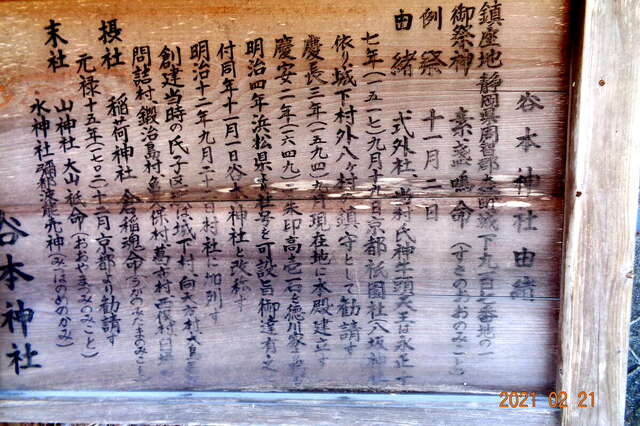 谷本神社由緒
鎮座地 静岡県周智郡 城下九百七番地の一
御祭神 素盞嗚命(すさのおのみこと)
例祭 十一月三日
由緒 式外社、当村氏神牛頭天王は永正十
七年(一五一七)九月十九日京都祇園社八坂神
依り城下村外八ヶ村の鎮守として勧請す
慶長三年(一五九四)九月現在地に本殿建立す
慶安二年(一六四九)御朱印高壱石を徳川家
明治四年浜松県 社号を可設旨御達有之
付同年十一月一日谷本神社と改称す
明治十二年九月二十 村社に加列す
創建当時の氏子区 は城下村、向天方村、大鳥
問詰村、鍛治島村、亀久保村、葛布村、西俣村
摂社 稲荷神社 倉稲魂命(うがのみたまのみこと)
元禄十五年(一七〇二)十二月京都より勧請す
末社 山神社 大山祇命(おおやまつみのみこと)
水神社 彌都波能売神(みづはのめのかみ)
谷本神社
2021 02 21